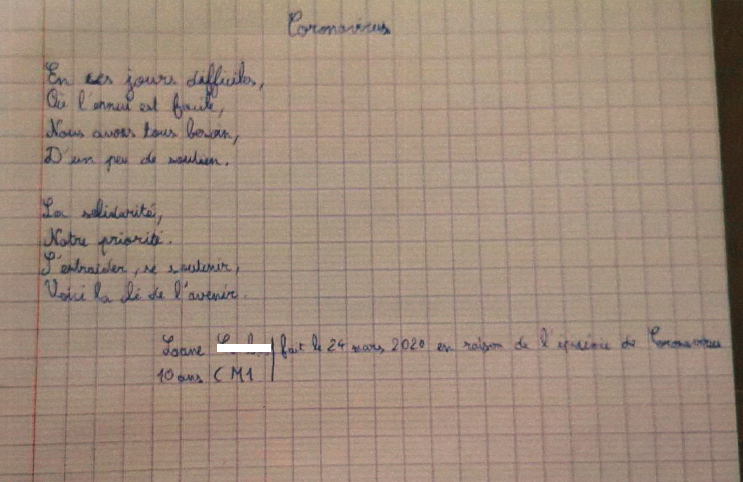 Coronavirus
En ces jours difficiles,
Où l'ennui est facile,
Nous avons tous besoin,
D'un peu de soutien.
La solidarité,
Notre priorité.
S'entraider, se soutenir,
Voici la clé de l'avenir.
Loane fait le 24 mars 2020 en raison de l' de Coronavirus
10 ans CM1